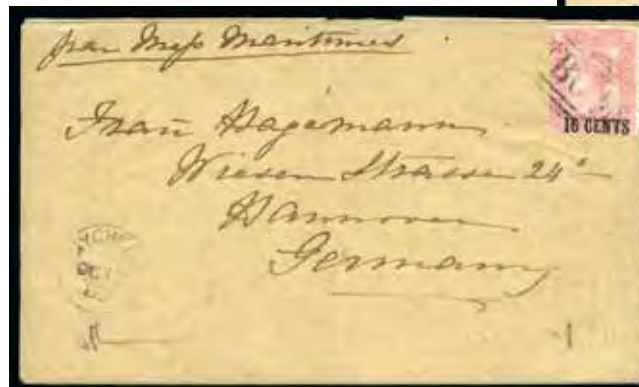 par Mess Maritimes
16 CENTS
Frau Hagemann
Wiesen Strasse 24
Hannover
Germany